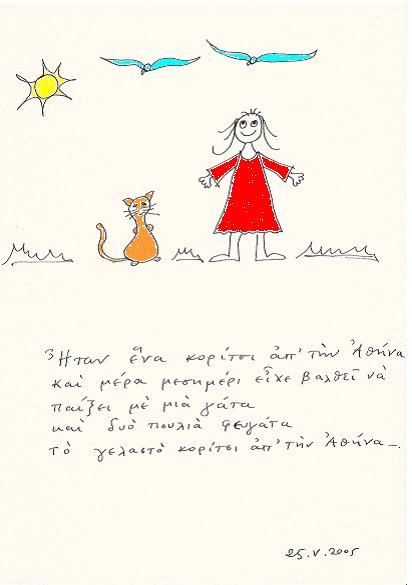 Ἦταν ἕνα κορίτσι ἀπ' τὴν Ἀθήνα
καὶ μέρα μεσημέρι εἶχε βαλθεῖ νὰ
παίξει μὲ μιὰ γάτα
καὶ δυὸ πουλιὰ φευγάτα
τὸ γελαστὸ κορίτσι ἀπ' τὴν Ἀθήνα_.
25.V.2005